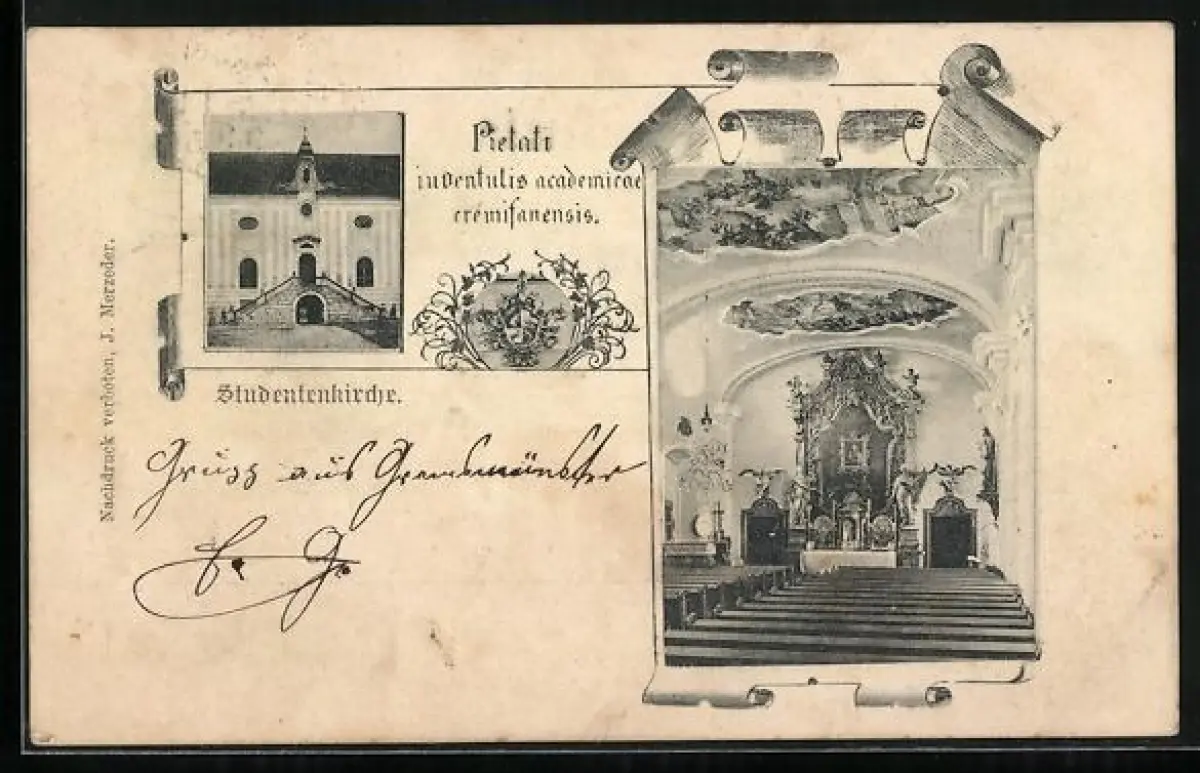 Pietati
iuventutis academicae
cremifanensis.
Studentenkirche.
Gruss aus Cremsmünster
Nachdruck verboten, J. Merzeder.